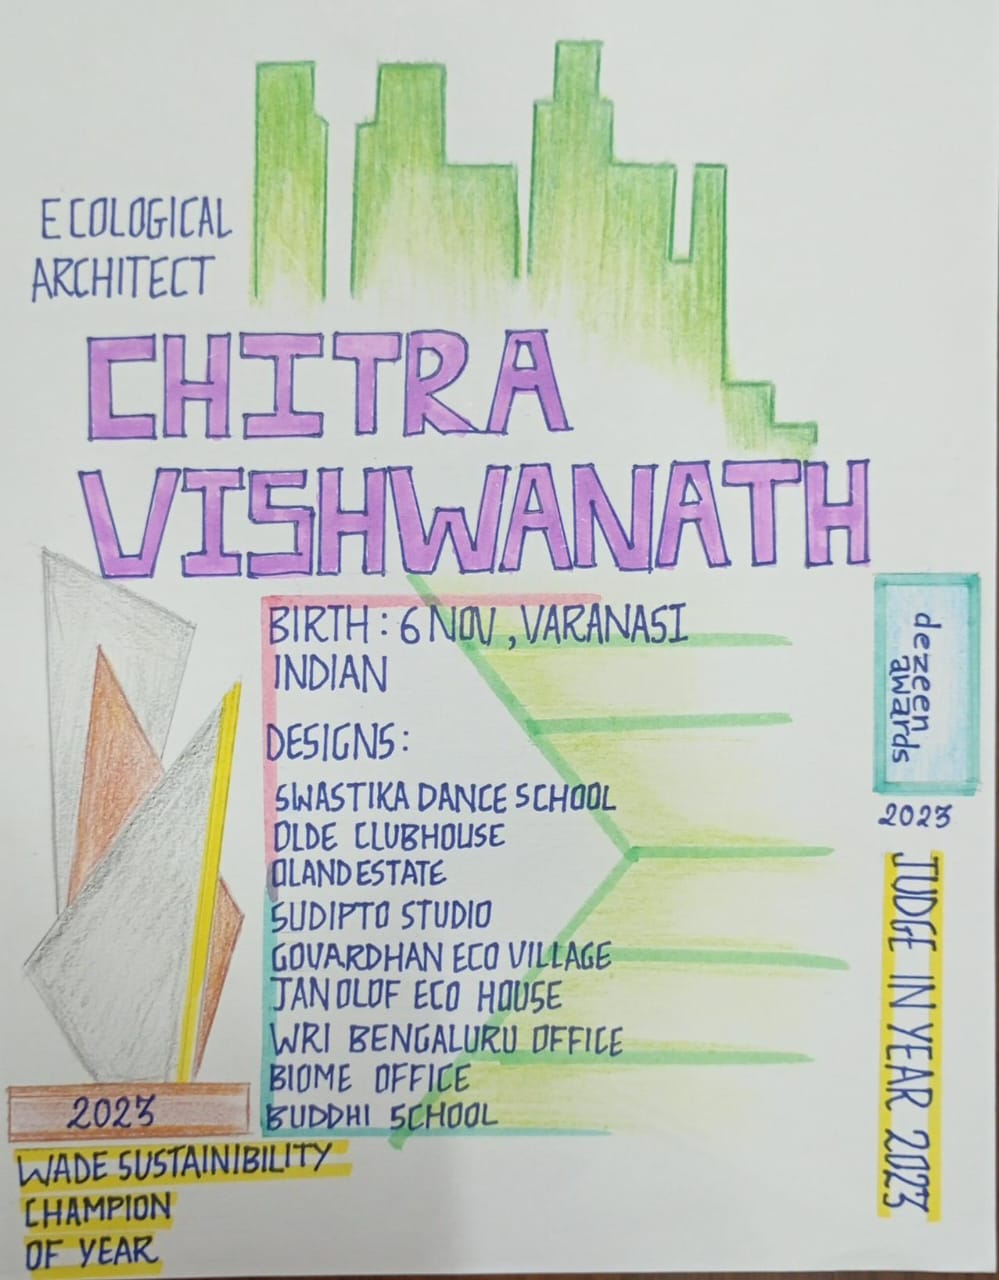 ECOLOGICAL
ARCHITECT
CHITRA
VISHWANATH
BIRTH : 6 NOV , VARANASI
INDIAN
DESIGNS:
SWASTIKA DANCE SCHOOL
OLDE CLUBHOUSE
OLAND ESTATE
SUDIPTO STUDIO
GOVARDHAN ECO VILLAGE
JAN OLOF ECO HOUSE
WRI BENGALURU OFFICE
BIOME OFFICE
BUDDHI SCHOOL
2023
WADE SUSTAINIBILITY
CHAMPION
OF YEAR
dezeen
awards
2023
JUDGE IN YEAR 2023